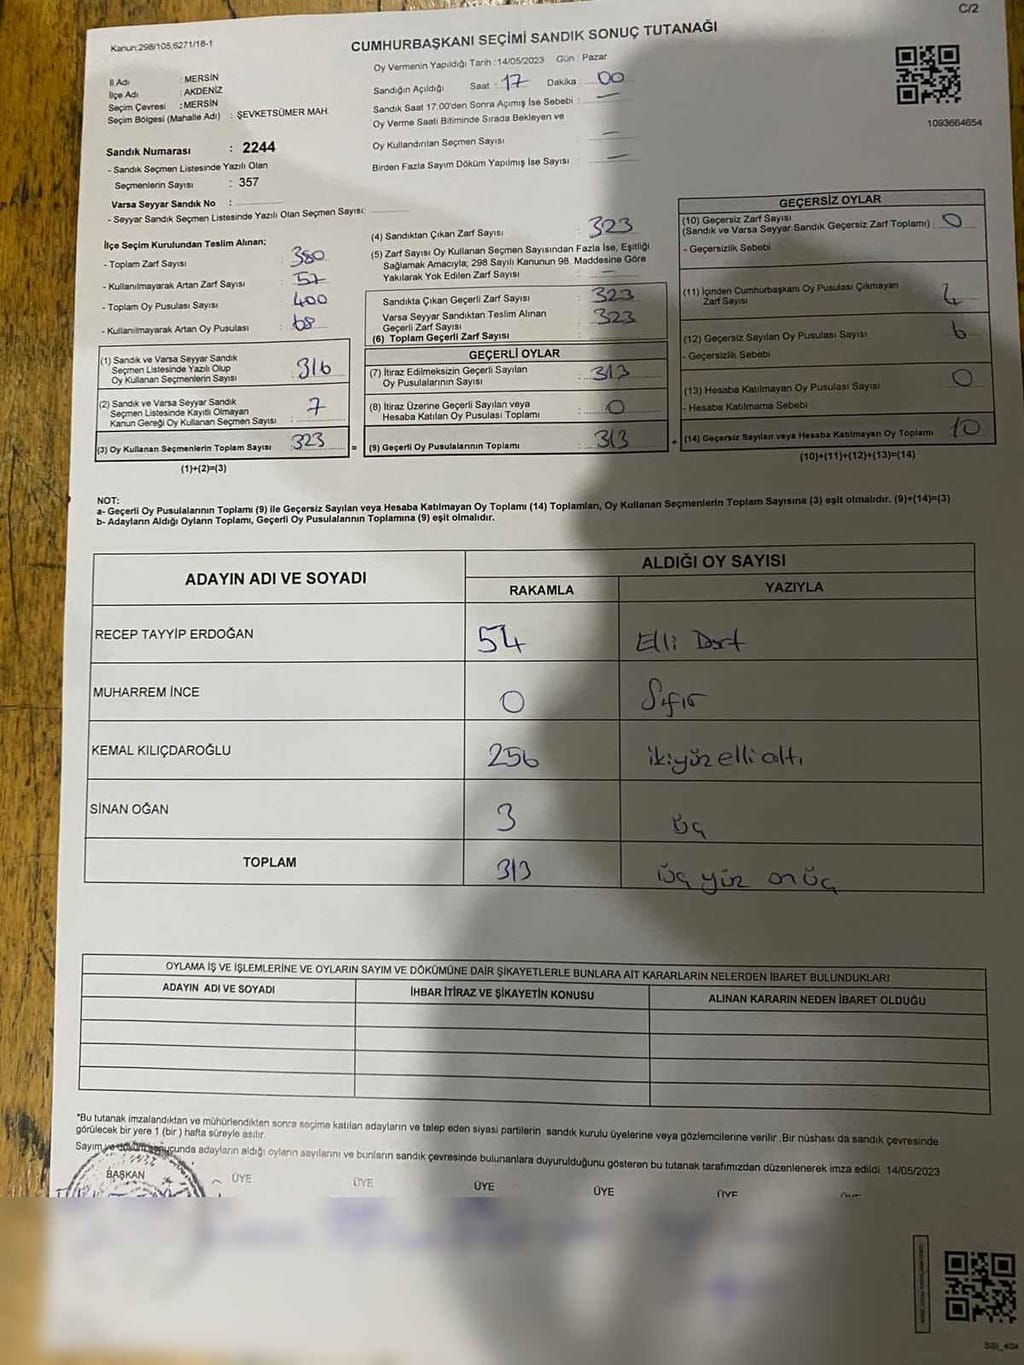 C/2
Kanun:298/105,6271/18-1
CUMHURBAŞKANI SEÇİMİ SANDIK SONUÇ TUTANAĞI
İl Adı : MERSİN
İlçe Adı : AKDENİZ
Seçim Çevresi : MERSİN
Seçim Bölgesi (Mahalle Adı) : ŞEVKETSÜMER MAH.
Sandık Numarası : 2244
- Sandık Seçmen Listesinde Yazılı Olan
Seçmenlerin Sayısı : 357
Varsa Seyyar Sandık No :
- Seyyar Sandık Seçmen Listesinde Yazılı Olan Seçmen Sayısı:
Oy Vermenin Yapıldığı Tarih :14/05/2023 Gün : Pazar
Sandığın Açıldığı Saat : 17 Dakika : 00
Sandık Saat 17.00'den Sonra Açımış İse Sebebi : —
Oy Verme Saati Bitiminde Sırada Bekleyen ve
Oy Kullandırılan Seçmen Sayısı : —
Birden Fazla Sayım Döküm Yapılmış İse Sayısı : —
1093664654
İlçe Seçim Kurulundan Teslim Alınan;
- Toplam Zarf Sayısı : 380
- Kullanılmayarak Artan Zarf Sayısı : 57
- Toplam Oy Pusulası Sayısı : 400
- Kullanılmayarak Artan Oy Pusulası : 68
(1) Sandık ve Varsa Seyyar Sandık
Seçmen Listesinde Yazılı Olup
Oy Kullanan Seçmenlerin Sayısı : 316
(2) Sandık ve Varsa Seyyar Sandık
Seçmen Listesinde Kayıtlı Olmayan
Kanun Gereği Oy Kullanan Seçmen Sayısı : 7
(3) Oy Kullanan Seçmenlerin Toplam Sayısı : 323 =
(1)+(2)=(3)
(4) Sandıktan Çıkan Zarf Sayısı : 323
(5) Zarf Sayısı Oy Kullanan Seçmen Sayısından Fazla İse, Eşitliği
Sağlamak Amacıyla; 298 Sayılı Kanunun 98. Maddesine Göre
Yakılarak Yok Edilen Zarf Sayısı : —
Sandıkta Çıkan Geçerli Zarf Sayısı : 323
Varsa Seyyar Sandıktan Teslim Alınan
Geçerli Zarf Sayısı : 323
(6) Toplam Geçerli Zarf Sayısı :
GEÇERLİ OYLAR
(7) İtiraz Edilmeksizin Geçerli Sayılan
Oy Pusulalarının Sayısı : 313
(8) İtiraz Üzerine Geçerli Sayılan veya
Hesaba Katılan Oy Pusulası Toplamı : 0
(9) Geçerli Oy Pusulalarının Toplamı : 313 +
GEÇERSİZ OYLAR
(10) Geçersiz Zarf Sayısı
(Sandık ve Varsa Seyyar Sandık Geçersiz Zarf Toplamı) : 0
- Geçersizlik Sebebi
(11) İçinden Cumhurbaşkanı Oy Pusulası Çıkmayan
Zarf Sayısı : 4
(12) Geçersiz Sayılan Oy Pusulası Sayısı : 6
- Geçersizlik Sebebi
(13) Hesaba Katılmayan Oy Pusulası Sayısı : 0
- Hesaba Katılmama Sebebi :
(14) Geçersiz Sayılan veya Hesaba Katılmayan Oy Toplamı : 10
(10)+(11)+(12)+(13)=(14)
NOT:
a- Geçerli Oy Pusulalarının Toplamı (9) ile Geçersiz Sayılan veya Hesaba Katılmayan Oy Toplamı (14) Toplamları, Oy Kullanan Seçmenlerin Toplam Sayısına (3) eşit olmalıdır. (9)+(14)=(3)
b- Adayların Aldığı Oyların Toplamı, Geçerli Oy Pusulalarının Toplamına (9) eşit olmalıdır.
ADAYIN ADI VE SOYADI ALDIĞI OY SAYISI
RAKAMLA YAZIYLA
RECEP TAYYİP ERDOĞAN 54 Elli Dört
MUHARREM İNCE 0 Sıfır
KEMAL KILIÇDAROĞLU 256 ikiyüz elli altı
SİNAN OĞAN 3 üç
TOPLAM 313 üç yüz on üç
OYLAMA İŞ VE İŞLEMLERİNE VE OYLARIN SAYIM VE DÖKÜMÜNE DAİR ŞİKAYETLERLE BUNLARA AİT KARARLARIN NELERDEN İBARET BULUNDUKLARI
ADAYIN ADI VE SOYADI İHBAR İTİRAZ VE ŞİKAYETİN KONUSU ALINAN KARARIN NEDEN İBARET OLDUĞU
*Bu tutanak imzalandıktan ve mühürlendikten sonra seçime katılan adayların ve talep eden siyasi partilerin sandık kurulu üyelerine veya gözlemcilerine verilir .Bir nüshası da sandık çevresinde
görülecek bir yere 1 (bir ) hafta süreyle asılır.
Sayım ve döküm sonucunda adayların aldığı oyların sayılarını ve bunların sandık çevresinde bulunanlara duyurulduğunu gösteren bu tutanak tarafımızdan düzenlenerek imza edildi. 14/05/2023
BAŞKAN ÜYE ÜYE ÜYE ÜYE ÜYE